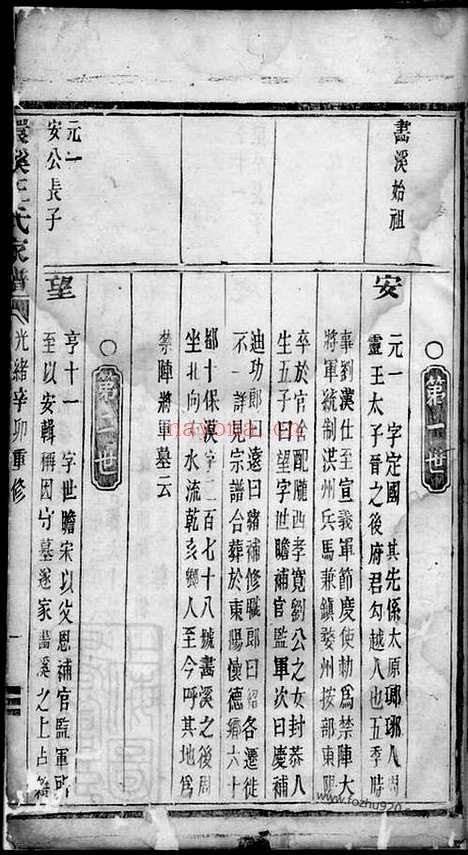 畵溪始祖
安
○第一世
元一　字定國　其先係太原瑯琊人周
靈王太子晉之後府君勾越人也五季時
事劉漢仕至宣義軍節度使勅爲禁陣大
將軍統制洪州兵馬兼鎮婺州按部東陽
卒於官舍配隴西孝寬劉公之女封恭人
生五子曰望字世瞻補官監軍次曰慶補
迪功郎曰遠曰豬補修職郎曰紹各遷徙
不一詳見宗譜合葬於東陽懷德鄉六十
都十保漠字二百七十八號畵溪之後周
坐北向南水流乾亥鄉人至今呼其地爲
禁陣將軍墓云
元一
安公長子
望
○第二世
亨十一　字世瞻宋以父恩補官監軍所
至以安輯稱因守墓遂家畵溪之上占籍
溪王氏家譜
光緒辛卯重修
一
nayona.cn
www.fozhu920.com